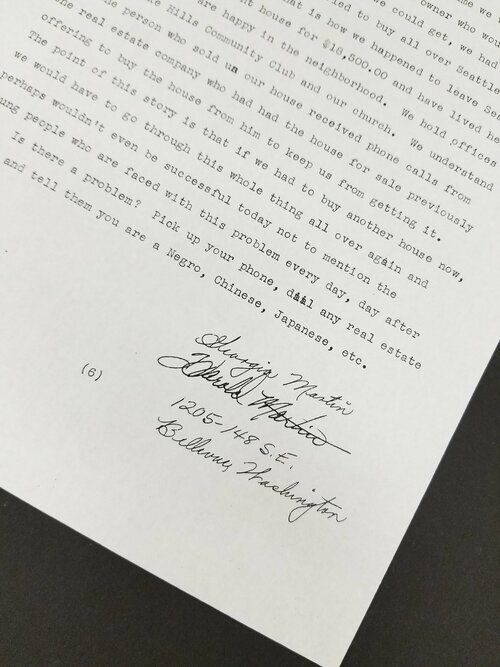 me we
owner who wou
we could get, we had
ied to buy all over Seattle
hat is how we happened to leave Sea
nt house for $18,500.00 and have lived he
are happy in the neighborhood. We hold offices
e Hills Community Club and our church. We understand
he person who sold us our house received phone calls from
he real estate company who had had the house for sale previously
offering to buy the house from him to keep us from getting it.
The point of this story is that if we had to buy another house now,
we would have to go through this whole thing all over again and
perhaps wouldn't even be successful today not to mention the
ung people who are faced with this problem every day, day after
Is there a problem? Pick up your phone, dial any real estate
and tell them you are a Negro, Chinese, Japanese, etc.
Georgia Martin
Harold Martin
1205-148 S.E.
Bellevue, Washington
(6)